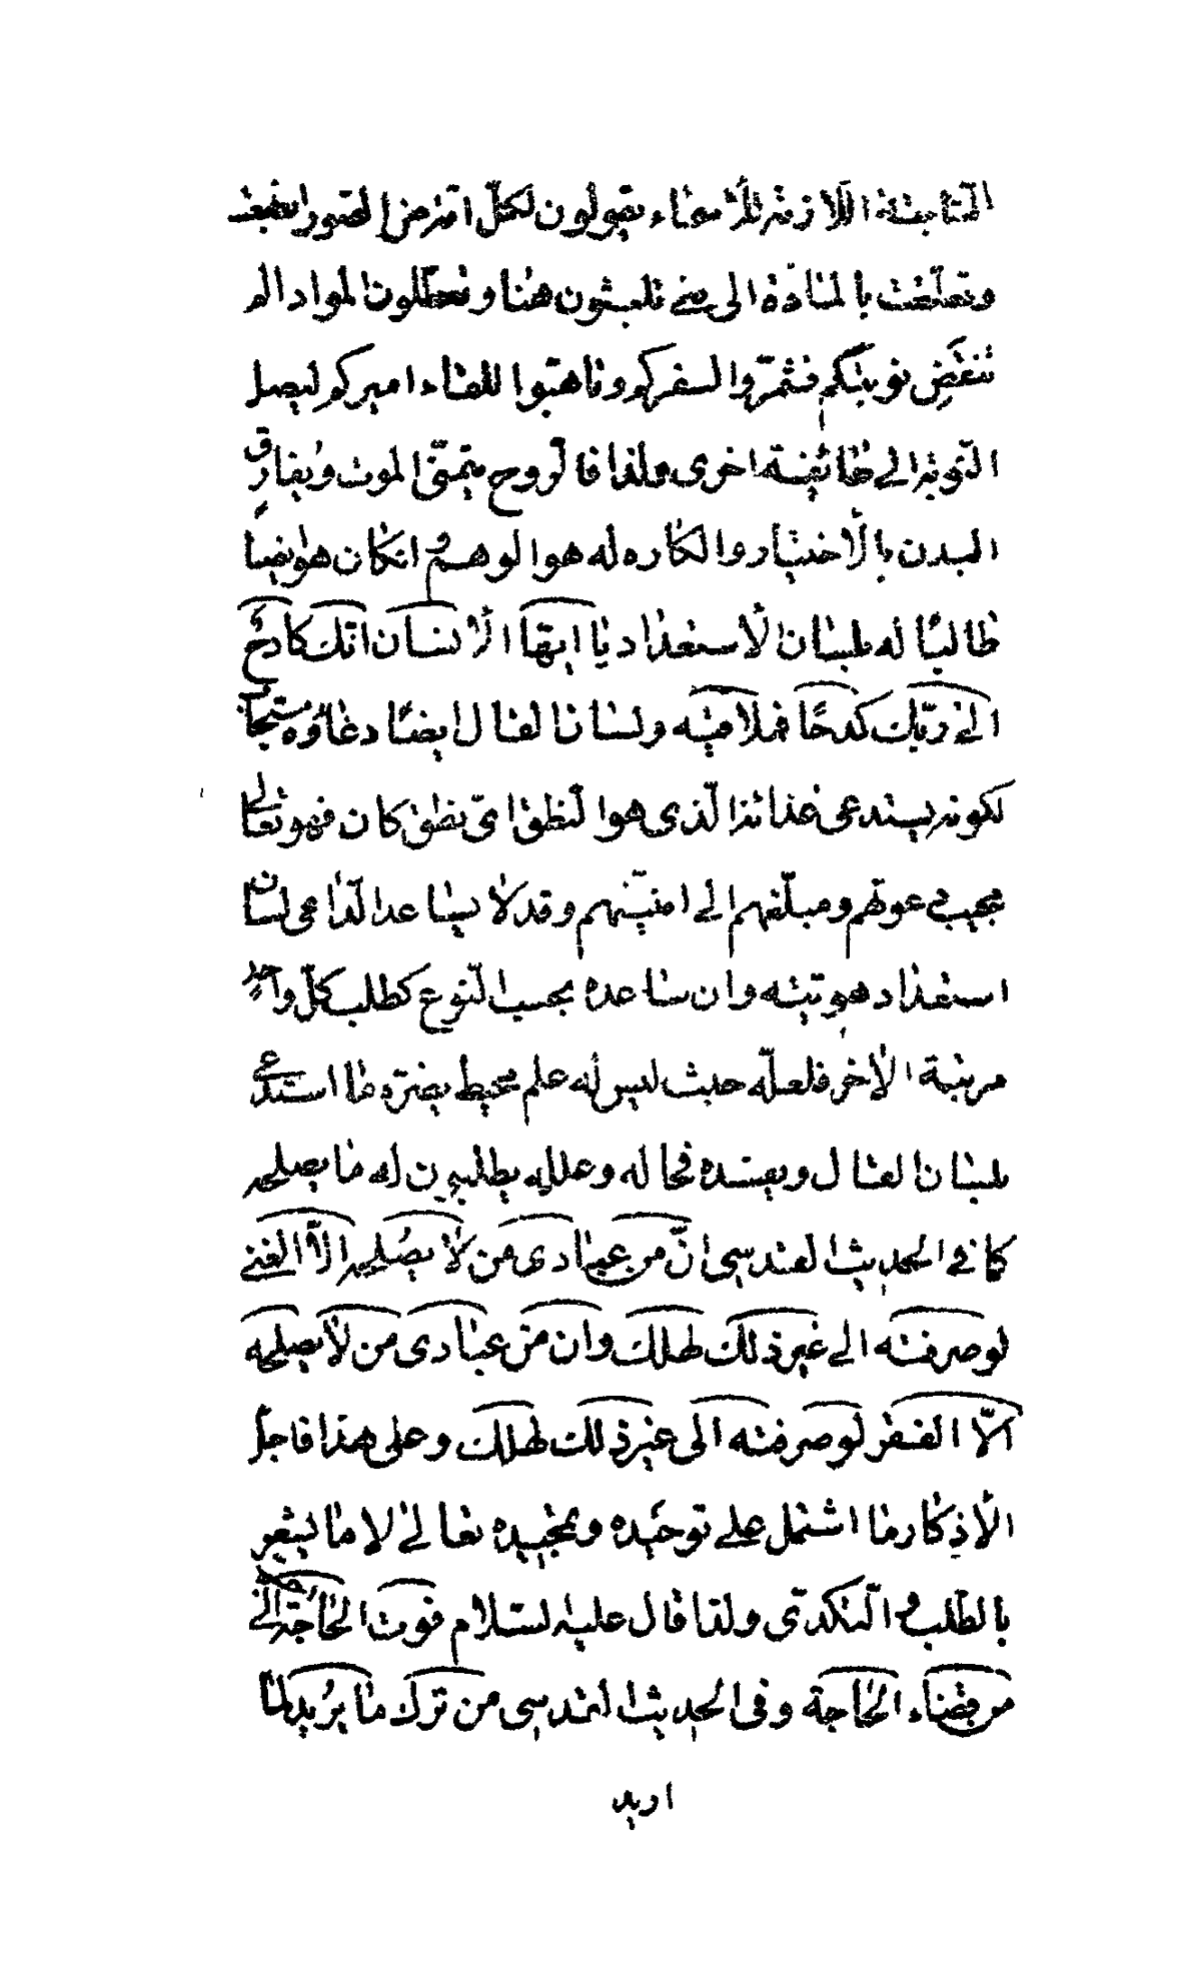 الثابتة اللازمة للأسماء يقولون لكل امة من الصور انطبعت
وتعلقت بالمادة الى متى تلبثون هنا وتعطلون المواد الم
تنقض نوبتكم فشمروا لسفركم وتاهبوا للقاء اميركم ليصل
النوبة الى طائفة اخرى ولذا فالروح يتمنى الموت ويفارق
البدن بالاختيار والكاره له هو الوهم وان كان هو ايضا
طالبا له بلسان الاستعداد يا ايها الانسان انك كادح
الى ربك كدحا فملاقيه ولسان القال ايضا دعاؤه مستجاب
لكونه يستدعى غذائنا الذى هو النطق اى نطق كان فهو تعالى
مجيب دعوتهم ومبلغهم الى امنيتهم وقد لا يساعد الداعى لسان
استعداد هويته وان ساعده بحسب النوع كطلب كل واحد
مرتبة الاخر فلعله حيث ليس له علم محيط يضره ما استدعى
بلسان القال ويفسده فحاله وعلله يطلبون له ما يصلحه
كما فى الحديث القدسى ان من عبادى من لا يصلحه الا الغنى
لو صرفته الى غير ذلك لهلك وان من عبادى من لا يصلحه
الا الفقر لو صرفته الى غير ذلك لهلك وعلى هذا فاجل
الاذكار ما اشتمل على توحيده وتمجيده تعالى لا ما يشعر
بالطلب والتكدى ولذا قال عليه السلام فوت الحاجة احب الى
من قضاء الحاجة وفى الحديث القدسى من ترك ما يريد لما
اريد